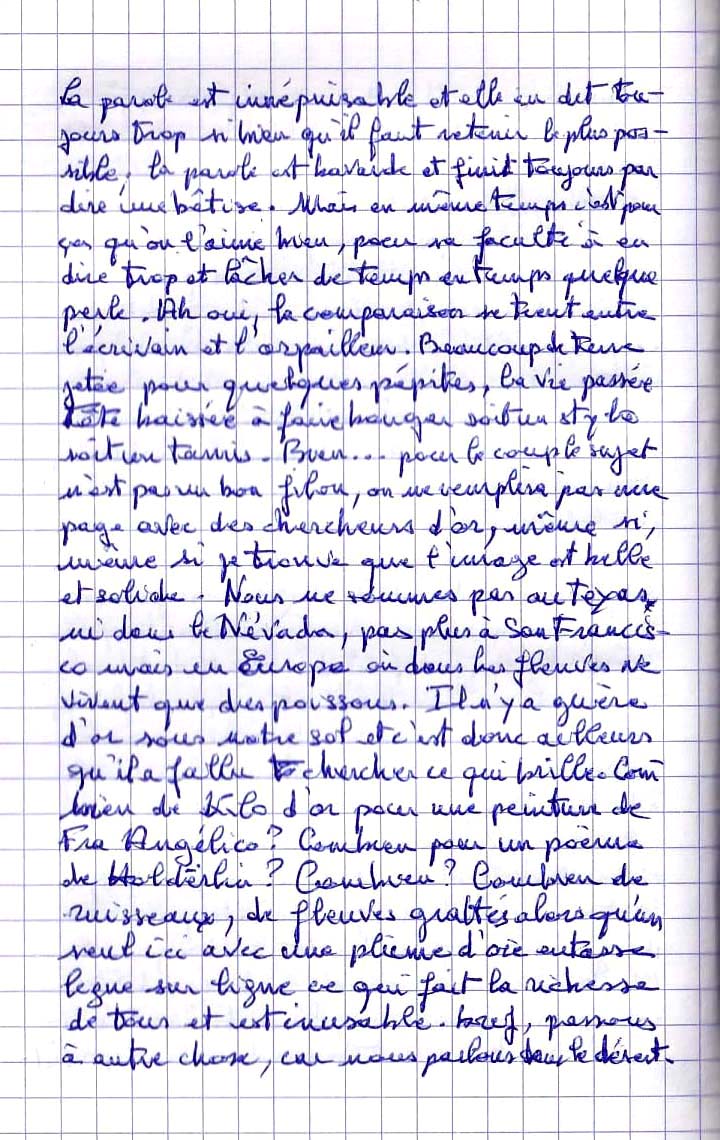 La parole est inépuisable et elle en dit tou-
jours trop si bien qu'il faut retenir le plus pos-
sible, la parole est bavarde et finit toujours par
dire une bêtise. Mais en même temps c'est pour
ça qu'on l'aime bien, pour sa faculté à en
dire trop et lâcher de temps en temps quelque
perle. Ah oui, la comparaison se tient entre
l'écrivain et l'orpailleur. Beaucoup de terre
jetée pour quelques pépites, la vie passée
tête baissée à faire bouger soit un stylo
soit un tamis. Bien... pour le coup le sujet
n'est pas un bon filon, on ne remplira pas une
page avec des chercheurs d'or, même si,
même si je trouve que l'image est belle
et solide. Nous ne sommes pas au Texas,
ni dans le Névada, pas plus à San Francis-
co mais en Europe où dans les fleuves ne
vivent que des poissons. Il n'y a guère
d'or sous notre sol et c'est donc ailleurs
qu'il a fallu chercher ce qui brille. Com
bien de kilo d'or pour une peinture de
Fra Angélico? Combien pour un poème
de Holderlin? Combien? Combien de
ruisseaux, de fleuves grattés alors qu'un
seul ici avec une plume d'oie entasse
ligne sur ligne ce qui fait la richesse
de tous et est inusable. bref, passons
à autre chose, car nous parlons dans le désert.